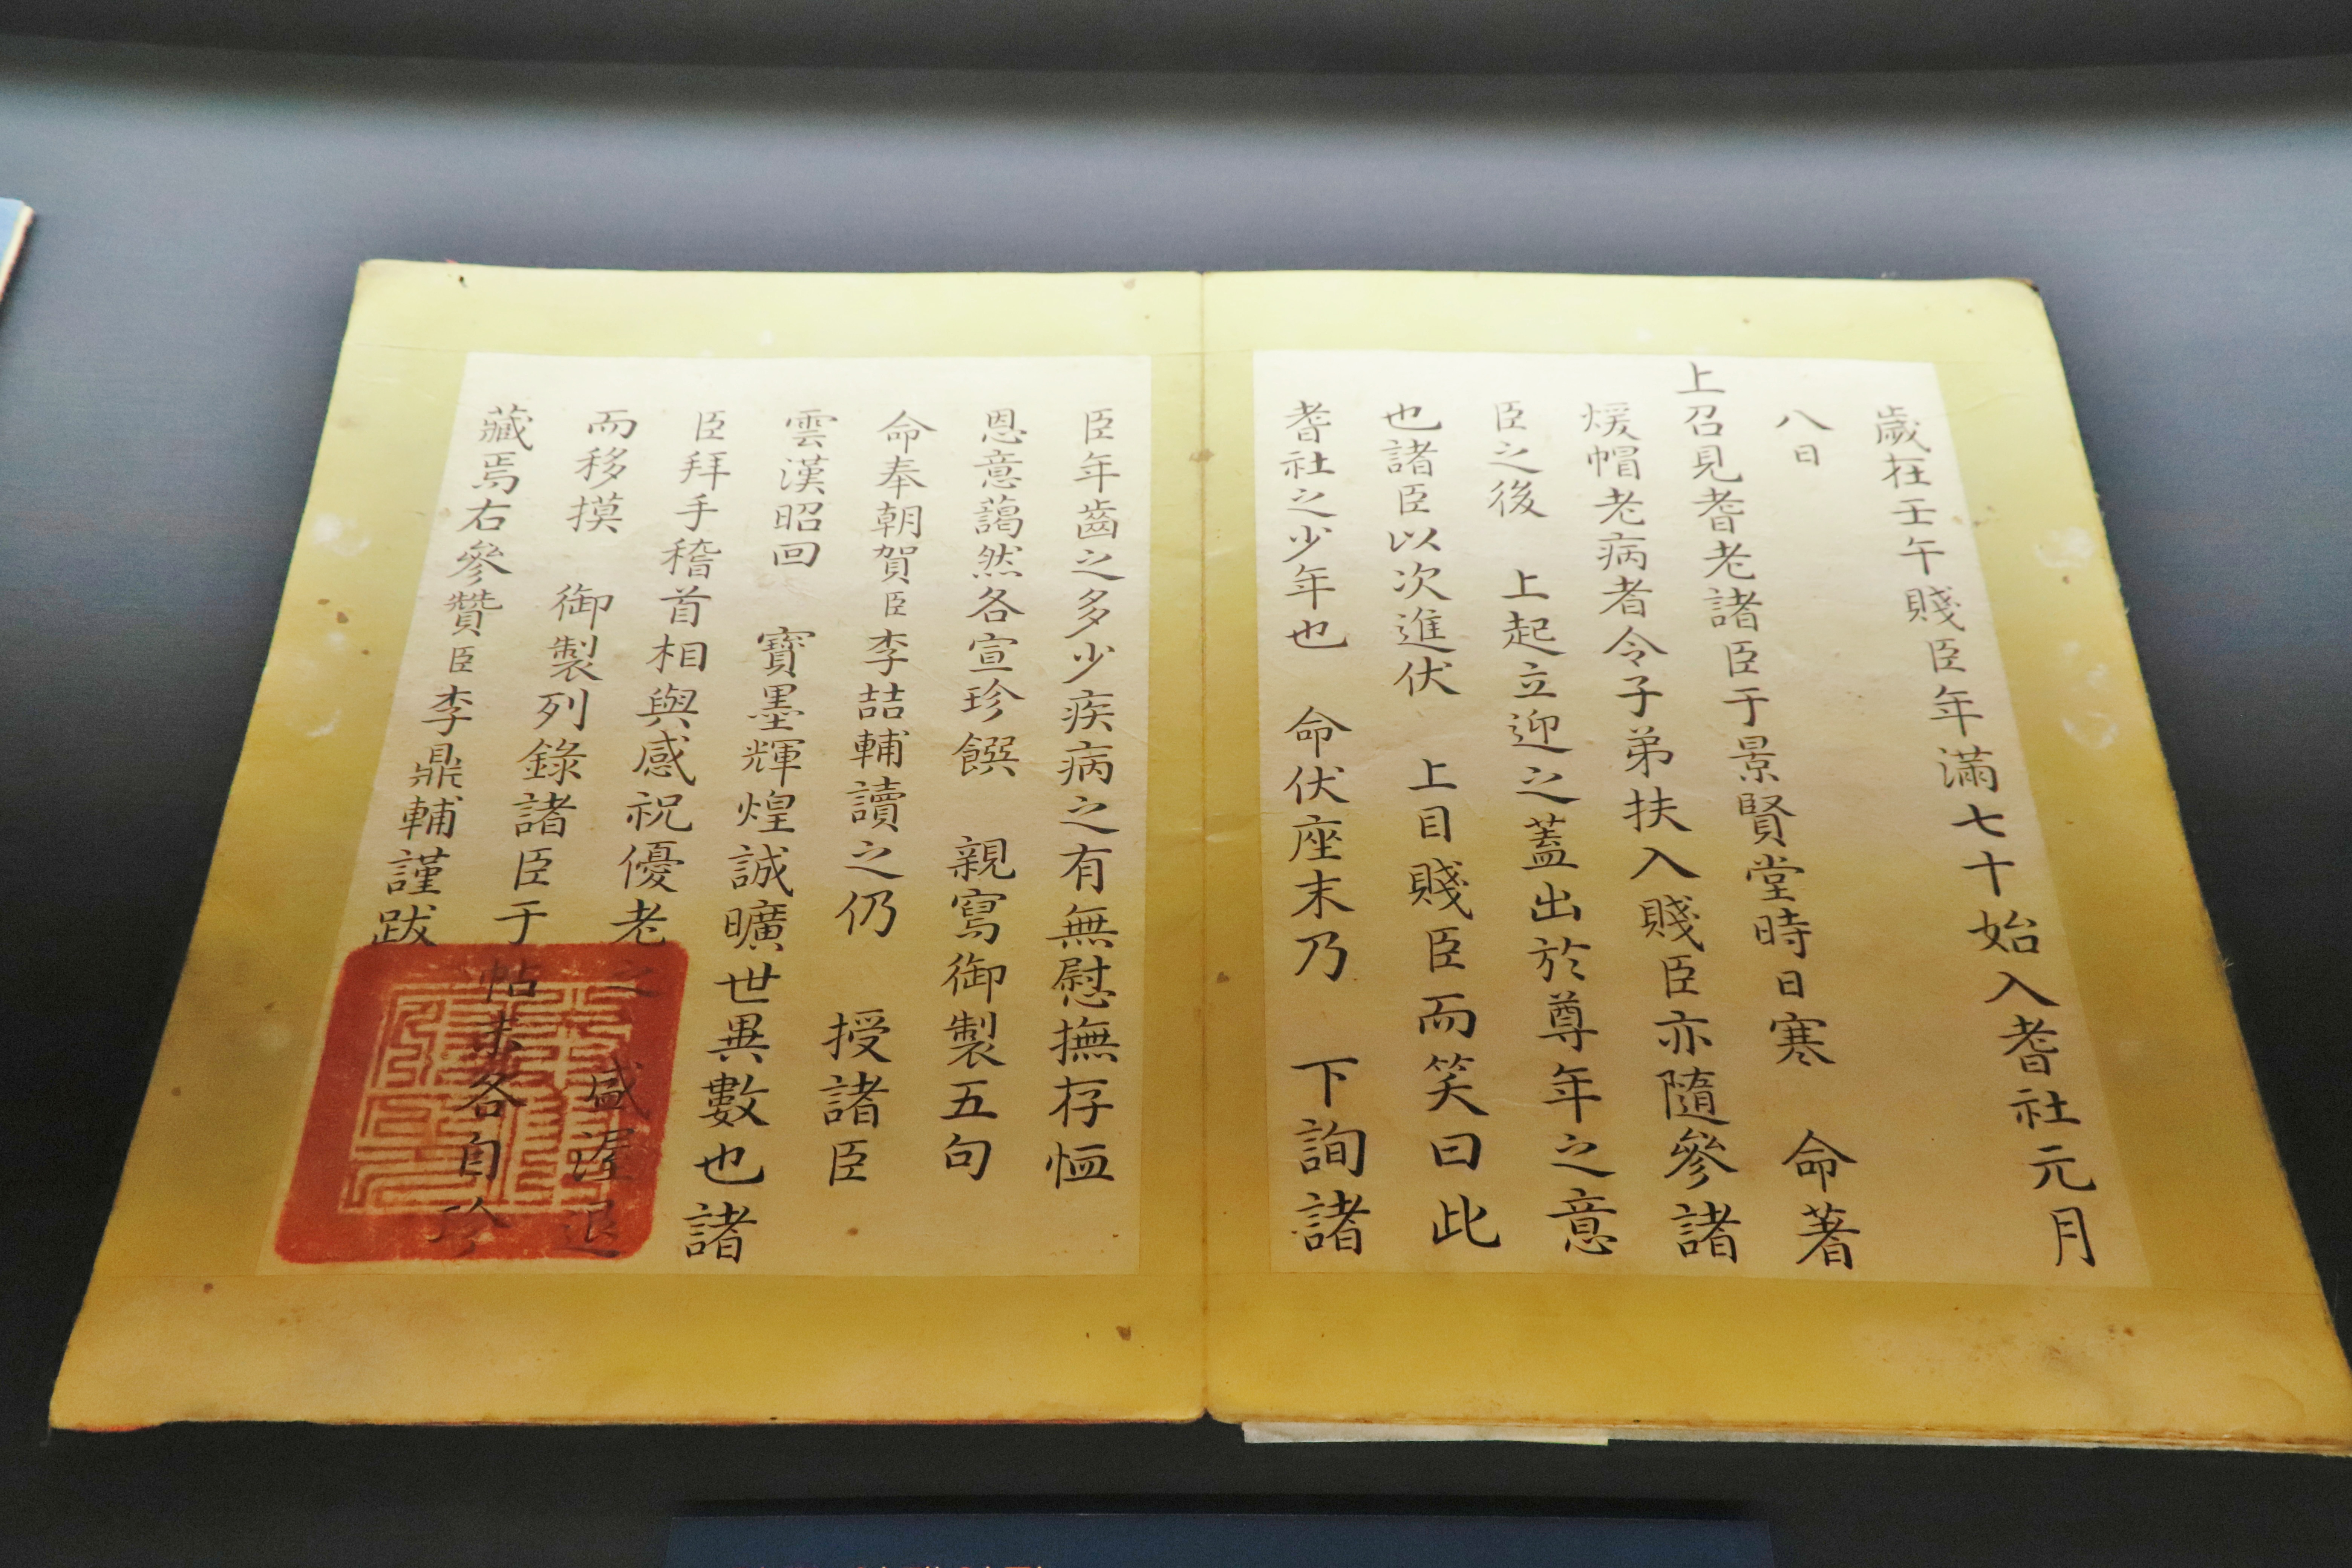 歲在壬午賤臣年滿七十始入耆社元月
八日
上召見耆老諸臣于景賢堂時日寒 命著
煖帽老病者令子弟扶入賤臣亦隨參諸
臣之後 上起立迎之蓋出於尊年之意
也諸臣以次進伏 上目賤臣而笑曰此
耆社之少年也 命伏座末乃 下詢諸
臣年齒之多少疾病之有無慰撫存恤
恩意藹然各宣珍饌 親寫御製五句
命奉朝賀臣李喆輔讀之仍 授諸臣
雲漢昭回 寶墨輝煌誠曠世異數也諸
臣拜手稽首相與感祝優老之 盛渥退
而移摸 御製列錄諸臣于帖末各自珍
藏焉右參贊臣李鼎輔謹跋